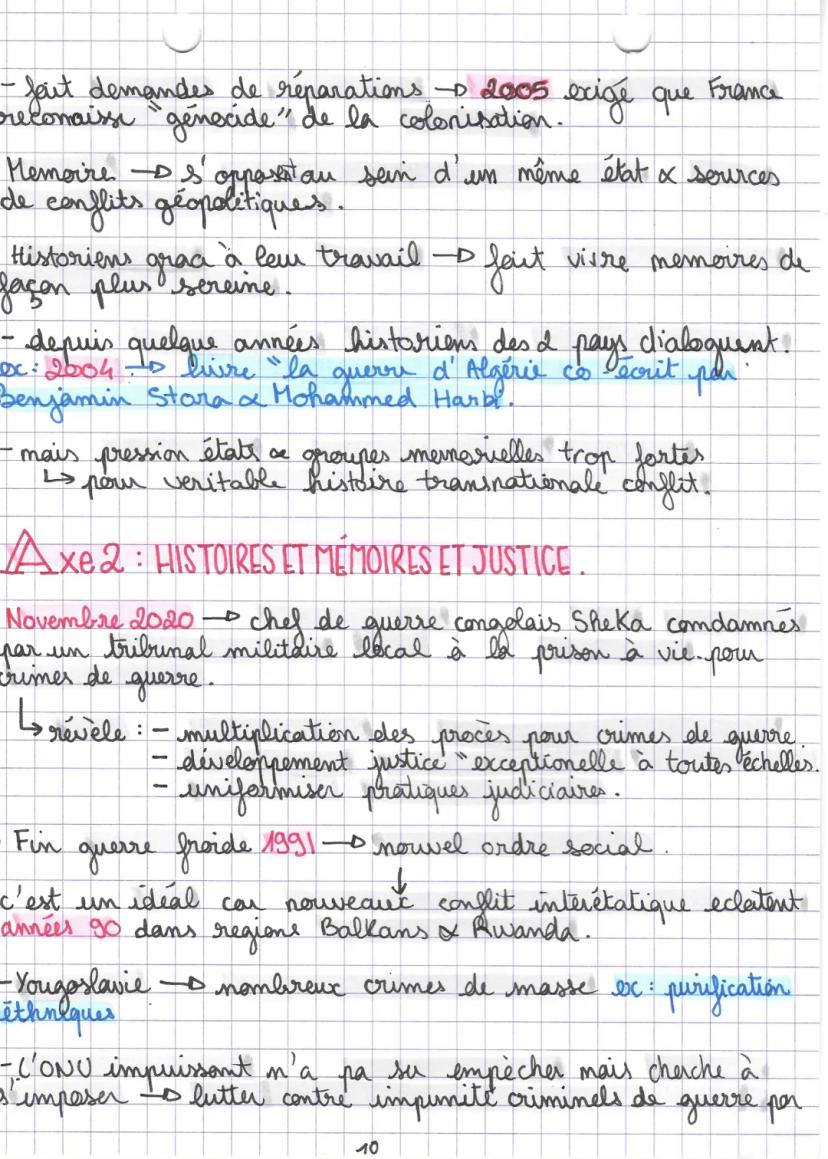 - fait demandes de réparations → 2005 exige que France
reconaisse "génocide" de la colonisation.
Memoire → s'opposent au sein d'un même état & sources
de conflits géopolitiques.
Historiens grace à leur travail → fait vivre memoires de
façon plus sereine.
- depuis quelque années historiens des 2 pays dialoguent.
ex : 2004 → livre "la guerre d'Algérie co-écrit par
Benjamin Stora & Mohammed Harbi.
- mais pression états & groupes memorielles trop fortes
↳ pour veritable histoire transnationale conflit.
Axe 2 : HISTOIRES ET MÉMOIRES ET JUSTICE.
Novembre 2020 → chef de guerre congolais SheKa comdamnés
par un tribunal militaire local à la prison à vie pour
crimes de guerre.
↳ révèle : - multiplication des procès pour crimes de guerre
- développement justice "exceptionelle à toutes échelles.
- uniformiser pratiques judiciaires.
Fin guerre froide 1991 → nouvel ordre social.
↓
c'est un idéal car nouveaux conflit interétatique eclatent
années 90 dans regione Balkans & Rwanda.
- Yougoslavie → nombreux crimes de masse ex : purification
éthniques
- L'ONU impuissant n'a pa su empècher mais cherche à
s'imposer → lutter contre impunité criminels de guerre par
10